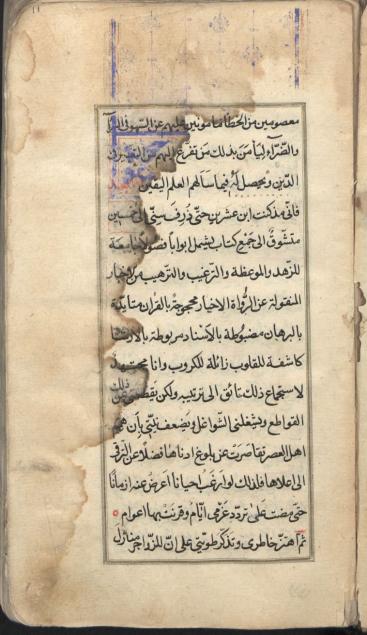 معصومين من الخطأ مأمونين عليهم عن السهو في السرآء
والضرآء ليأمن بذلك من تفزع اليهم من التغيير في
الدين ويحصل له فيما سألهم العلم اليقين
فاني مذ كنت ابن عشرين حتى ذرف سني الى خمسين
متشوق الى جمع كتاب يشمل ابوابا فصولا جامعة
للزهد والموعظة والترغيب والترهيب من الاخبار
المنقولة عن الرواة الاخيار محجوجة بالقران متايدة
بالبرهان مضبوطة بالاسناد مربوطة بالارشاد
كاشفة للقلوب زائلة للكروب وانا مجتهد
لاستجماع ذلك تائق الى ترتيبه ولكن تقطعني عن ذلك
القواطع وتشغلني الشواغل ويضعف نيتي بأن همم
اهل العصر تقاصرت عن بلوغ ادناها فضلا عن الترقي
الى اعلاها فلذلك لو ارغب احيانا اعرض عنه ازمانا
حتى مضت على تردد عزمي ايام وقرنت بها اعوام
ثم اهتز خاطري وتذكر طويتي على ان للزواجر منازل